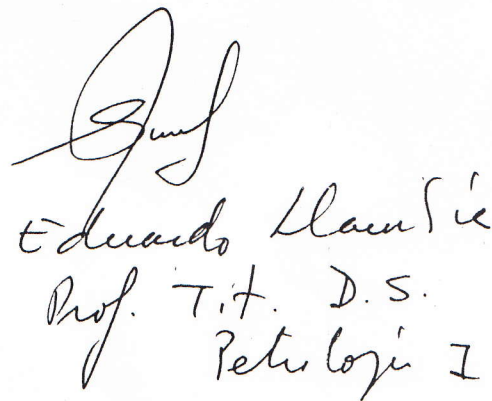 Eduardo Llambías
Prof. Tit. D.S.
Petrología I